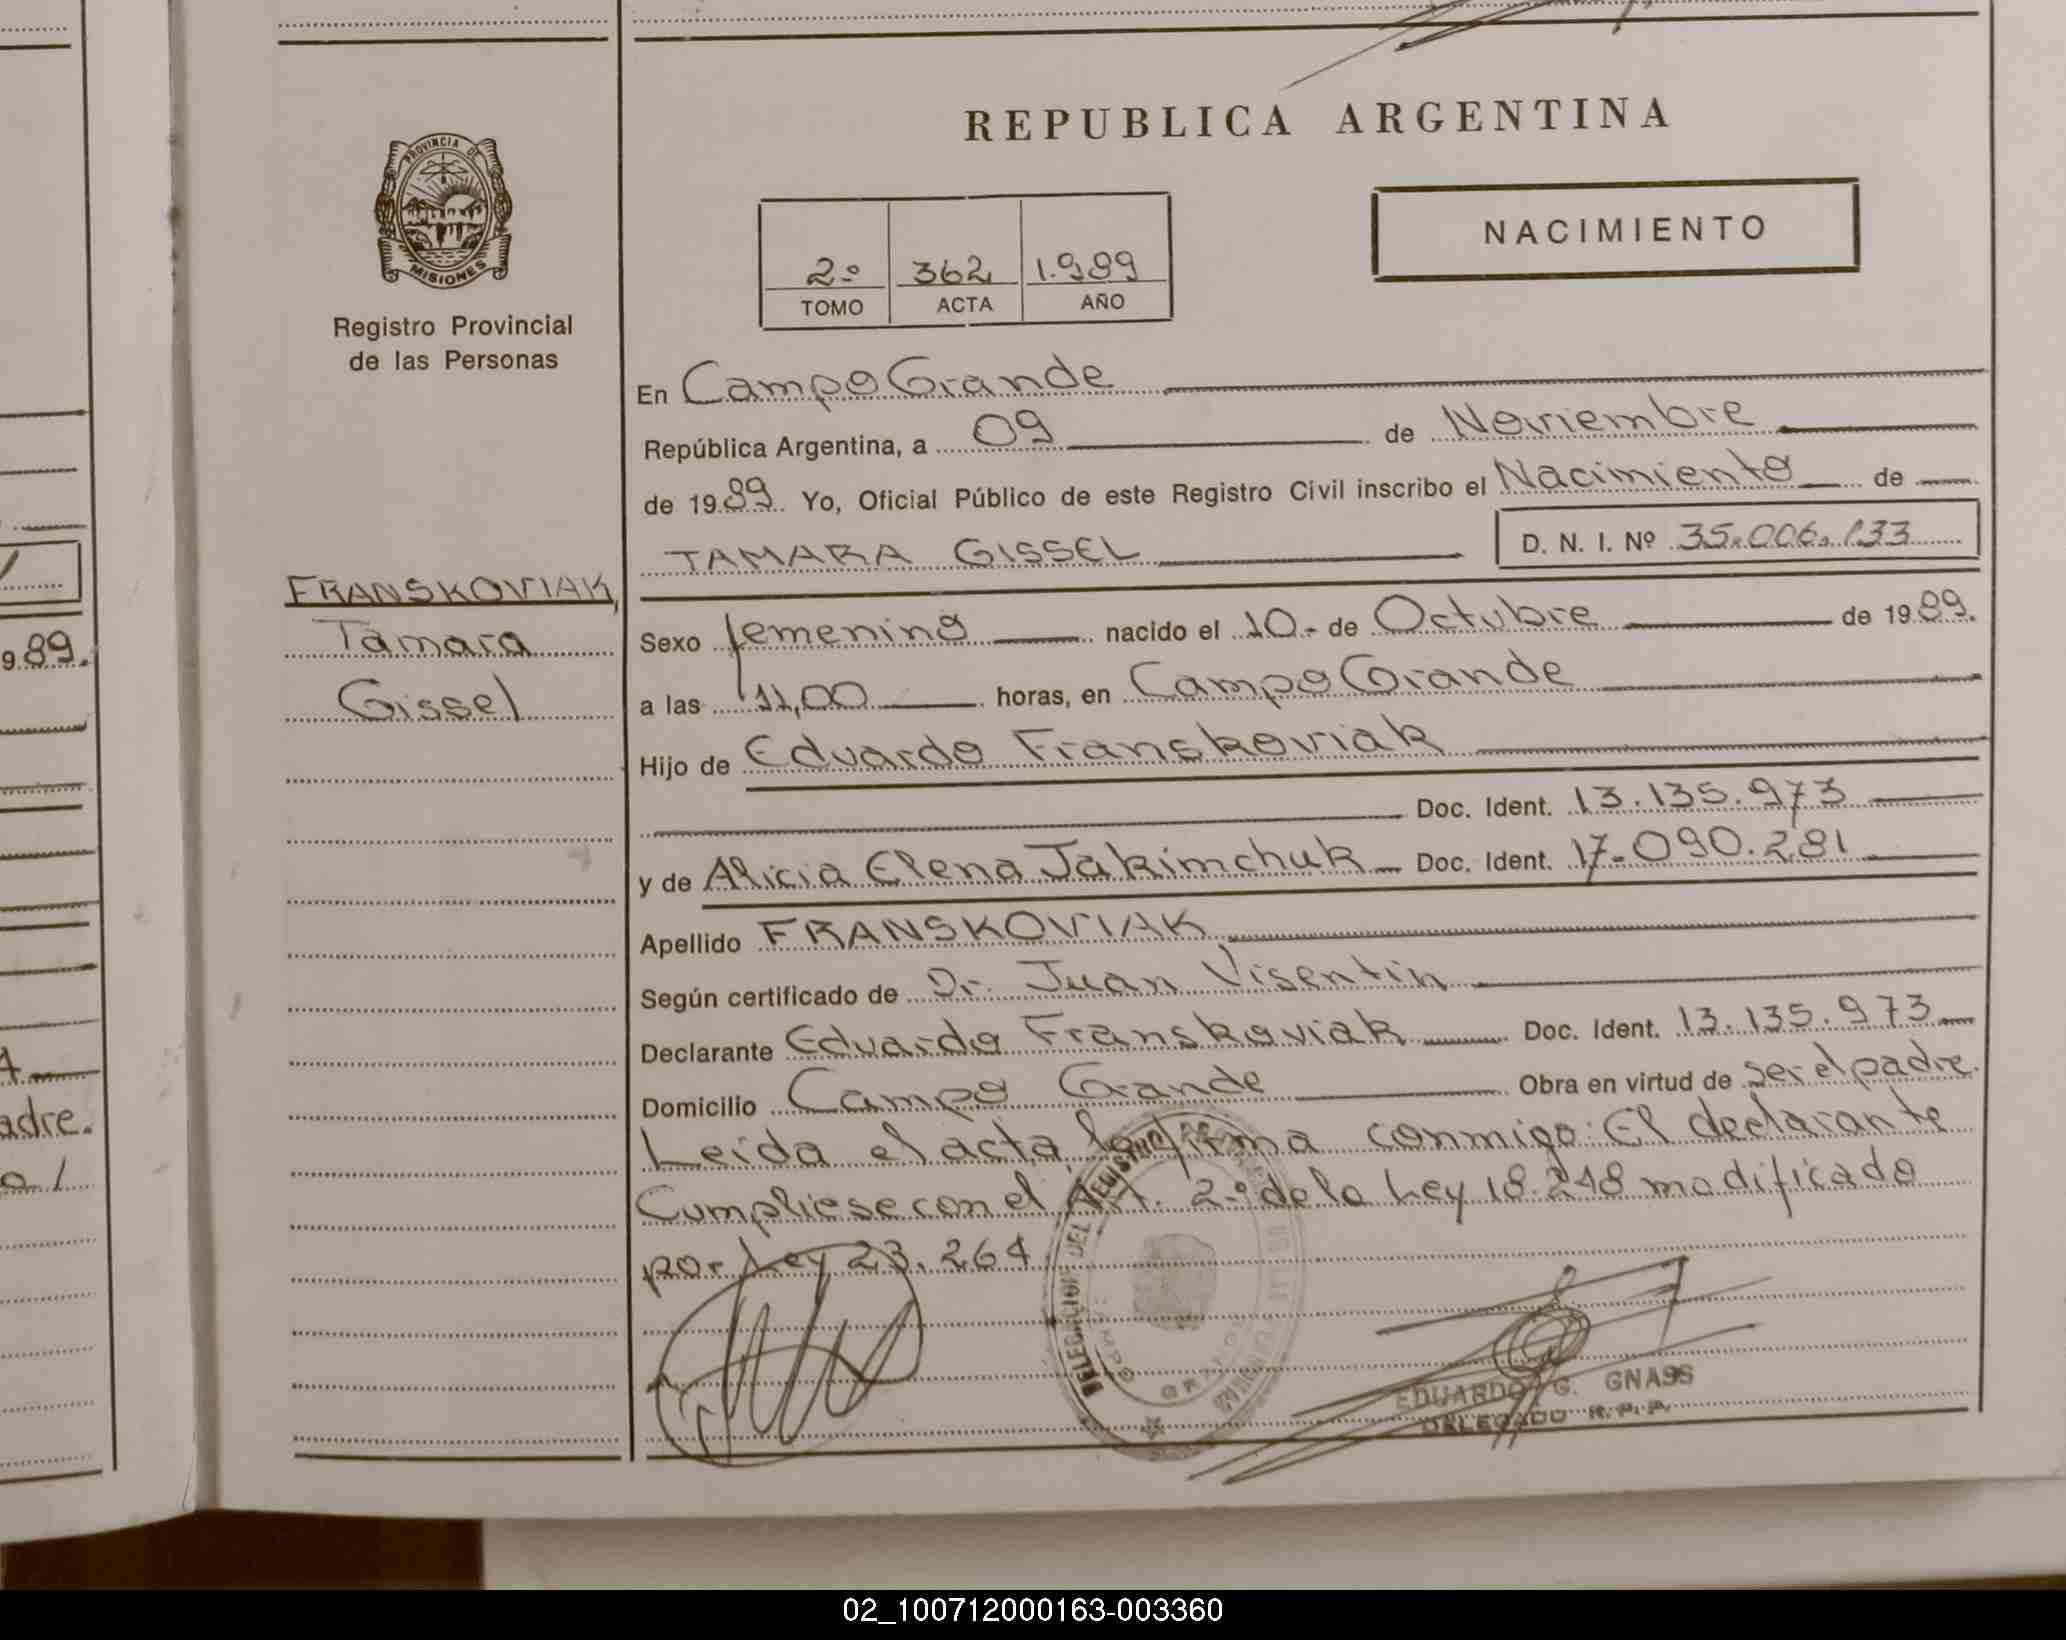 REPUBLICA ARGENTINA
PROVINCIA DE
MISIONES
Registro Provincial
de las Personas
2º 362 1.989
TOMO ACTA AÑO
NACIMIENTO
En Campo Grande
República Argentina, a 09 de Noviembre
de 1989. Yo, Oficial Público de este Registro Civil inscribo el Nacimiento de
TAMARA GISSEL
D. N. I. Nº 35.006.133
FRANSKOVIAK,
Tamara
Gissel
Sexo femenino nacido el 10.- de Octubre de 1989.
a las 11,00 horas, en Campo Grande
Hijo de Eduardo Franskoviak
Doc. Ident. 13.135.973
y de Alicia Elena Jakimchuk Doc. Ident. 17.090.281
Apellido FRANSKOVIAK
Según certificado de Dr. Juan Visentin
Declarante Eduardo Franskoviak Doc. Ident. 13.135.973
Domicilio Campo Grande Obra en virtud de ser el padre.
Leída el acta, la firma conmigo: El declarante
Cumpliese con el Art. 2º de la Ley 18.248 modificado
por Ley 23.264
EDUARDO G. GNASS
DELEGADO R.P.P.
989.
adre.
02_100712000163-003360